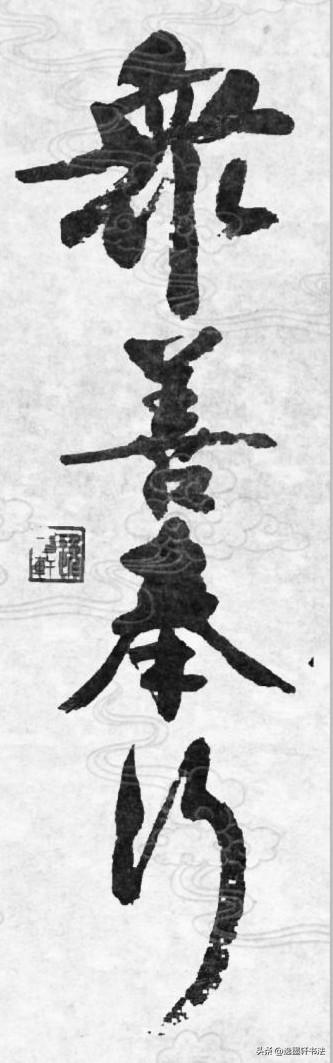 眾善奉行
头条 @逸墨轩书法